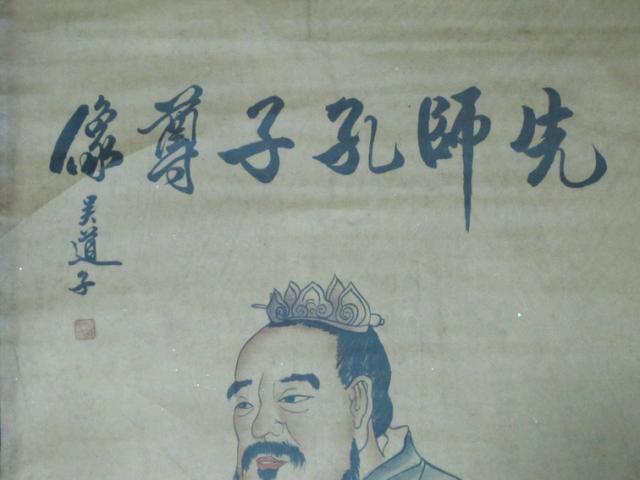 先師孔子尊像
吴道子